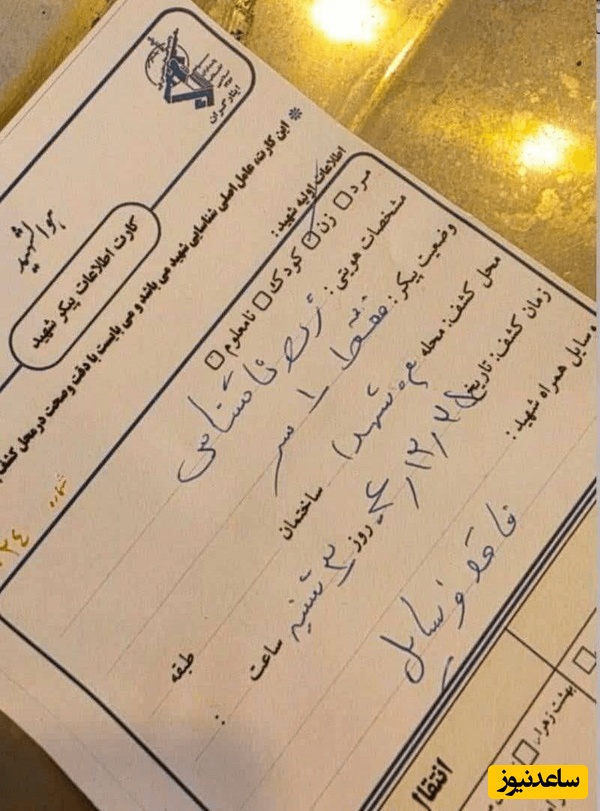 ایثارگران
هوالشهید
کارت اطلاعات پیکر شهید
* این کارت، عامل اصلی شناسایی شهید می باشد و می بایست با دقت و صحت در محل کشف
شماره
۲۴
اطلاعات اولیه شهید:
مرد □ زن ☑ کودک □ نامعلوم □
مشخصات هویتی: زن ناشناس
وضعیت پیکر: فقط ۱ سر
محل کشف: محله م شهدا ساختمان طبقه
زمان کشف: تاریخ ۰۴/۱۲/۲۵ روز ۲ شنبه ساعت :
وسایل همراه شهید:
فاقد وسایل
انتقا
بهشت زهرا
ساعدنیوز